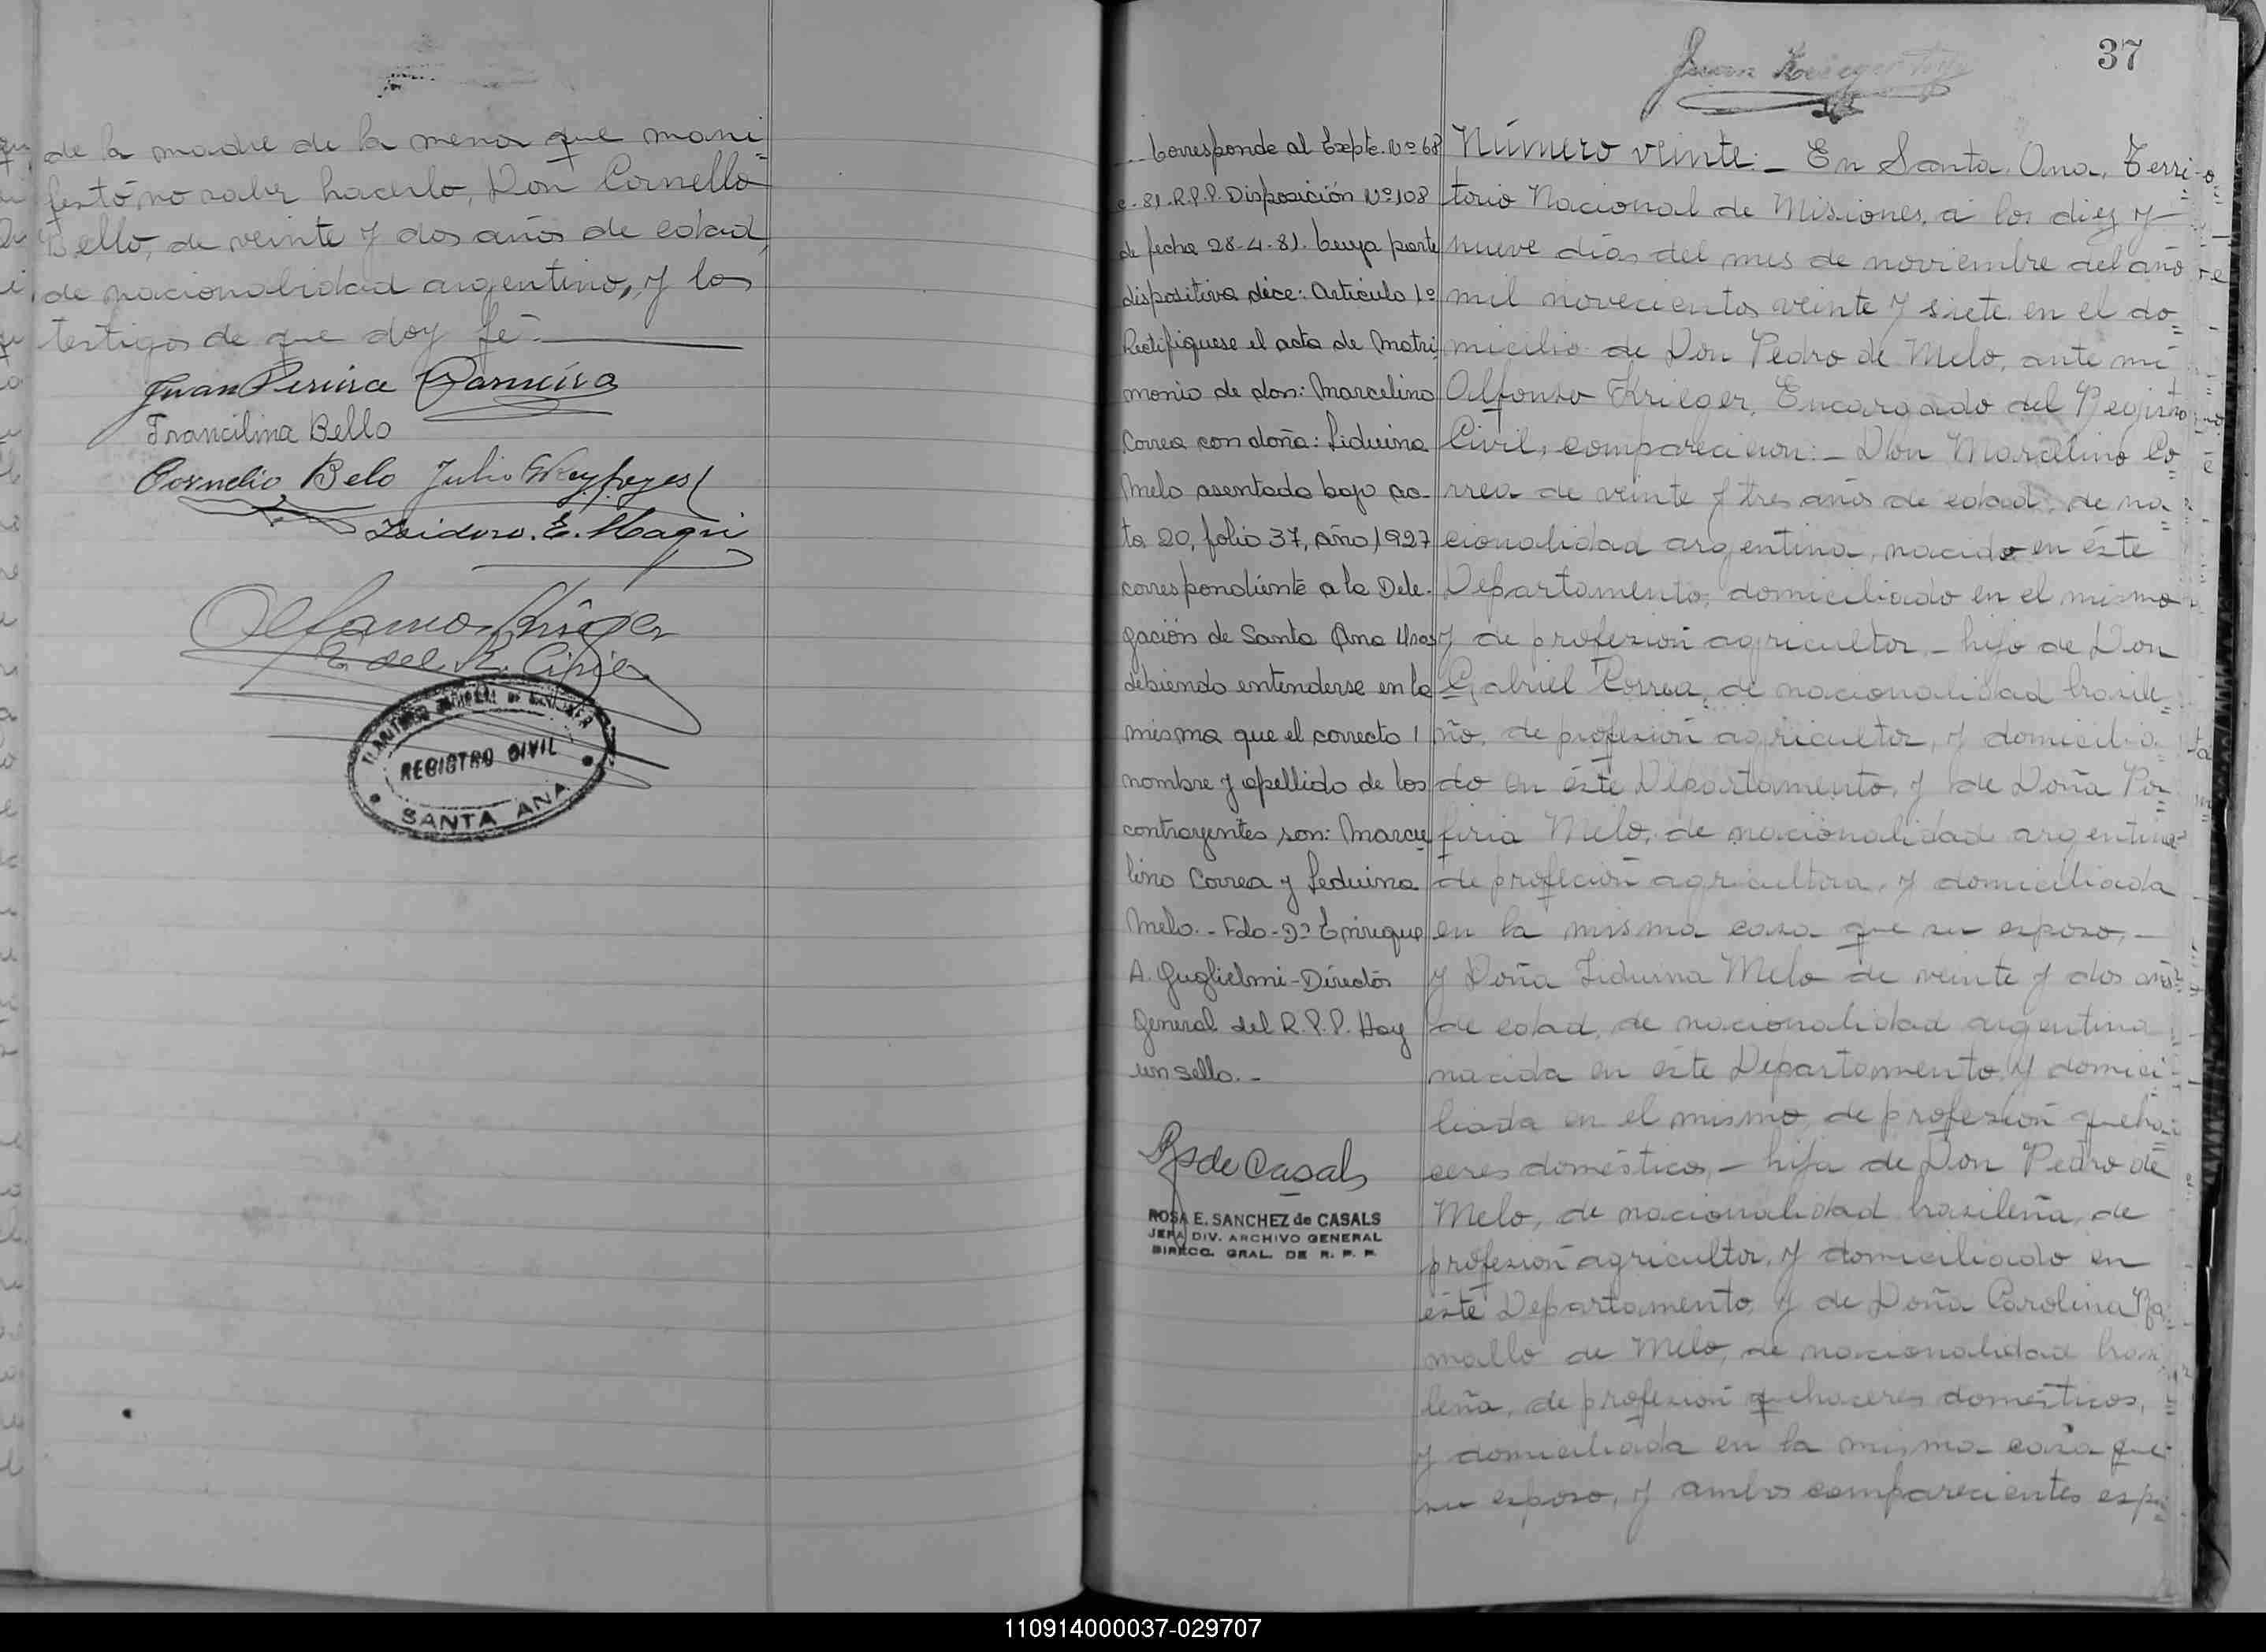 de la madre de la menor que mani=
festó no saber hacerlo, Don Cornello
Bello, de veinte y dos años de edad,
de nacionalidad argentino, y los
testigos de que doy fé.
Juan Pereira
Francilina Bello
Cornelio Belo Julio
Isidoro. E. Maqui
Alfonso Krieger
E. del R. Civil
REGISTRO CIVIL
SANTA ANA
37
Juan Krieger
Corresponde al Expte. Nº 68
e-81-R.P.P. Disposición Nº 108
de fecha 28-4-81. Cuya parte
dispositiva dice: Artículo 1º
Rectifiquese el acta de Matri
monio de don: Marcelino
Correa con doña: Liduina
Melo asentada bajo ac-
ta 20, folio 37, año 1927
correspondiente a la Dele-
gación de Santa Ana Mnes
debiendo entenderse en la
misma que el correcto
nombre y apellido de los
contrayentes son: Marce
lino Correa y Leduina
Melo. - Fdo - Dº Enrique
A. Guglielmi - Director
General del R.P.P. Hay
un sello. -
R S de Casals
ROSA E. SANCHEZ de CASALS
JEFA DIV. ARCHIVO GENERAL
DIRECC. GRAL. DE R. P. P.
Número veinte: _ En Santa Ana, Terri=
torio Nacional de Misiones, a los diez y
nueve días del mes de noviembre del año
mil novecientos veinte y siete en el do=
micilio de Don Pedro de Melo, ante mi
Alfonso Krieger, Encargado del Registro
Civil, comparecieron: _ Don Marcelino Co=
rrea de veinte y tres años de edad, de na=
cionalidad argentina, nacido en éste
Departamento, domiciliado en el mismo
y de profesión agricultor, - hijo de Don
Gabriel Correa, de nacionalidad brasile=
ño, de profesión agricultor, y domicilia=
do en éste Departamento, y de Doña Por=
firia Melo, de nacionalidad argentina
de profeción agricultora, y domiciliada
en la misma casa que su esposo, _
y Doña Liduina Melo de veinte y dos años
de edad, de nacionalidad argentina
nacida en éste Departamento y domici=
liada en el mismo, de profesión queha=
ceres domésticos, - hija de Don Pedro de
Melo, de nacionalidad brasileña, de
profesión agricultor, y domiciliado en
éste Departamento, y de Doña Carolina Ra=
mallo de Melo, de nacionalidad brasi=
leña, de profesión quehaceres domésticos,
y domiciliada en la misma casa que
su esposo, y ambos comparecientes espo=
110914000037-029707